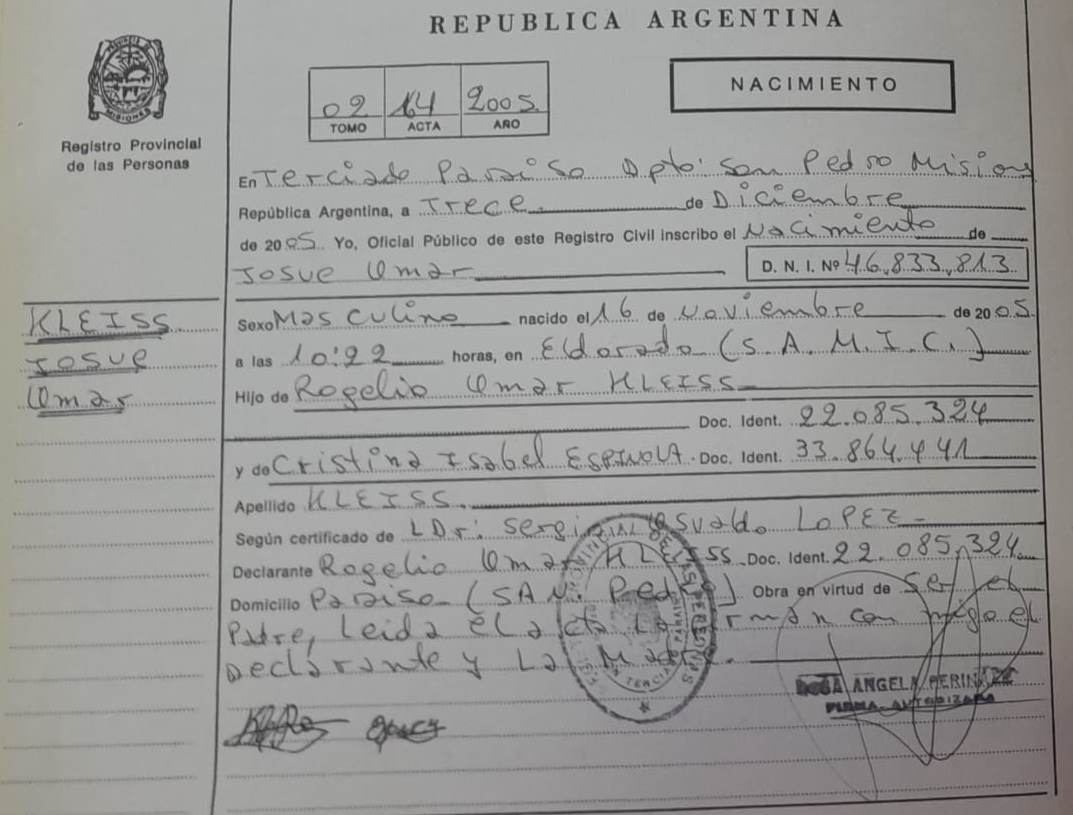 REPUBLICA ARGENTINA
MISIONES
Registro Provincial
de las Personas
02 14 2005
TOMO ACTA AÑO
NACIMIENTO
En Terciado Paraiso Dpto: San Pedro Misiones
República Argentina, a Trece de Diciembre
de 2005 Yo, Oficial Público de este Registro Civil inscribo el Nacimiento de
Josue Omar D. N. I. Nº 46.833.813
KLEISS
Josue
Omar
Sexo Masculino nacido el 16 de Noviembre de 2005
a las 10:22 horas, en Eldorado (S. A. M. I. C.)
Hijo de Rogelio Omar KLEISS
Doc. Ident. 22.085.324
y de Cristina Isabel ESPINOLA Doc. Ident. 33.864.441
Apellido KLEISS.
Según certificado de LDr: Sergio Osvaldo LOPEZ
Declarante Rogelio Omar KLEISS Doc. Ident. 22.085.324
Domicilio Paraiso (SAN. Pedro) Obra en virtud de ser el
Padre, Leida el Acta La Firman con migo el
Declarante y La Madre.
ROSA ANGELA
FIRMA AUTORIZADA